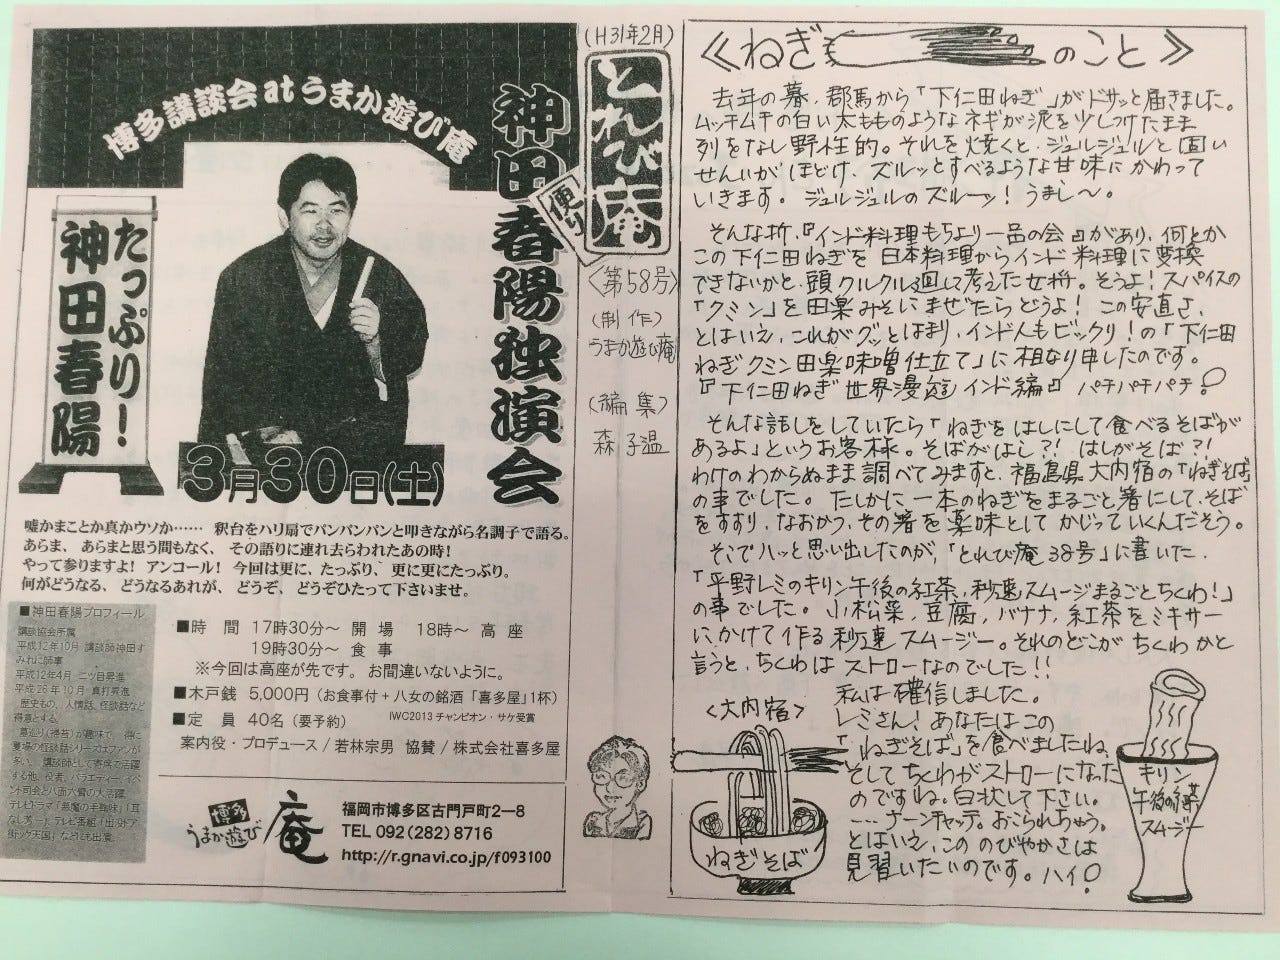 博多講談会atうまか遊び庵
神田春陽独演会
たっぷり！
神田春陽
3月30日(土)
嘘かまことか真かウソか…… 釈台をハリ扇でパンパンパンと叩きながら名調子で語る。
あらま、あらまと思う間もなく、その語りに連れ去らわれたあの時！
やって参りますよ！アンコール！ 今回は更に、たっぷり、更に更にたっぷり。
何がどうなる、どうなるあれが、どうぞ、どうぞひたって下さいませ。
■神田春陽プロフィール
講談協会所属
平成12年10月 講談師神田す
みれに師事
平成12年4月 二ツ目昇進
平成26年10月 真打昇進
歴史もの、人情話、怪談話など
得意とする。
墓巡り(掃苔)が趣味で、特に
夏場の怪談話シリーズはファンが
多い。講談師として寄席で活躍
する他、役者、バラエティー、イベ
ント司会と八面六臂の大活躍。
テレビドラマ「悪魔の手毬唄」「耳
なし芳一」、テレビ番組「出没！ア
ド街ック天国」などにも出演。
■時 間 17時30分～ 開 場 18時～ 高 座
19時30分～ 食 事
※今回は高座が先です。お間違いないように。
■木戸銭 5,000円（お食事付＋八女の銘酒「喜多屋」1杯）
IWC2013 チャンピオン・サケ受賞
■定 員 40名（要予約）
案内役・プロデュース／若林宗男 協賛／株式会社喜多屋
博多
うまか遊び
庵
福岡市博多区古門戸町2―8
TEL 092(282)8716
http://r.gnavi.co.jp/f093100
(H31年2月)
とれび庵
便り
〈第58号〉
(制作)
うまか遊び庵
(編集)
森 子温
《ねぎのこと》
去年の暮、郡馬から「下仁田ねぎ」がドサッと届きました。
ムッチムチの白い太もものようなネギが泥を少しつけたまま
列をなし野性的。それを焼くと、ジュルジュルと固い
せんいがほどけ、ズルッとすべるような甘味にかわって
いきます。ジュルジュルのズルーッ！うまし～。
そんな折、『インド料理もちより一品の会』があり、何とか
この下仁田ねぎを日本料理からインド料理に変換
できないかと、頭クルクル廻して考えた女将。そうよ！スパイスの
「クミン」を田楽みそにまぜたらどうよ！この安直さ、
とはいえ、これがグッとはまり、インド人もビックリ！の「下仁田
ねぎクミン田楽味噌仕立て」に相なり申したのです。
『下仁田ねぎ世界漫遊インド編』パチパチパチ！
そんな話しをしていたら「ねぎをはしにして食べるそばが
あるよ」というお客様。そばがはし？！はしがそば？！
わけのわからぬまま調べてみますと、福島県大内宿の「ねぎそば」
の事でした。たしかに一本のねぎをまるごと箸にして、そば
をすすり、なおかつ、その箸を薬味としてかじっていくんだそう。
そこでハッと思い出したのが、「とれび庵38号」に書いた、
「平野レミのキリン午後の紅茶、秒速スムージまるごとちくわ！」
の事でした。小松菜、豆腐、バナナ、紅茶をミキサー
に、かけて作る秒速スムージー。それのどこがちくわかと
言うと、ちくわはストローなのでした！！
私は確信しました。
レミさん！あなたはこの
「ねぎそば」を食べましたね、
そしてちくわがストローになった
のですね。白状して下さい。
…ナーンチャッテ。おこられちゃう。
とはいえ、こののびやかさは
見習いたいのです。ハイ！
〈大内宿〉
ねぎそば
キリン
午後の紅茶
スムージー